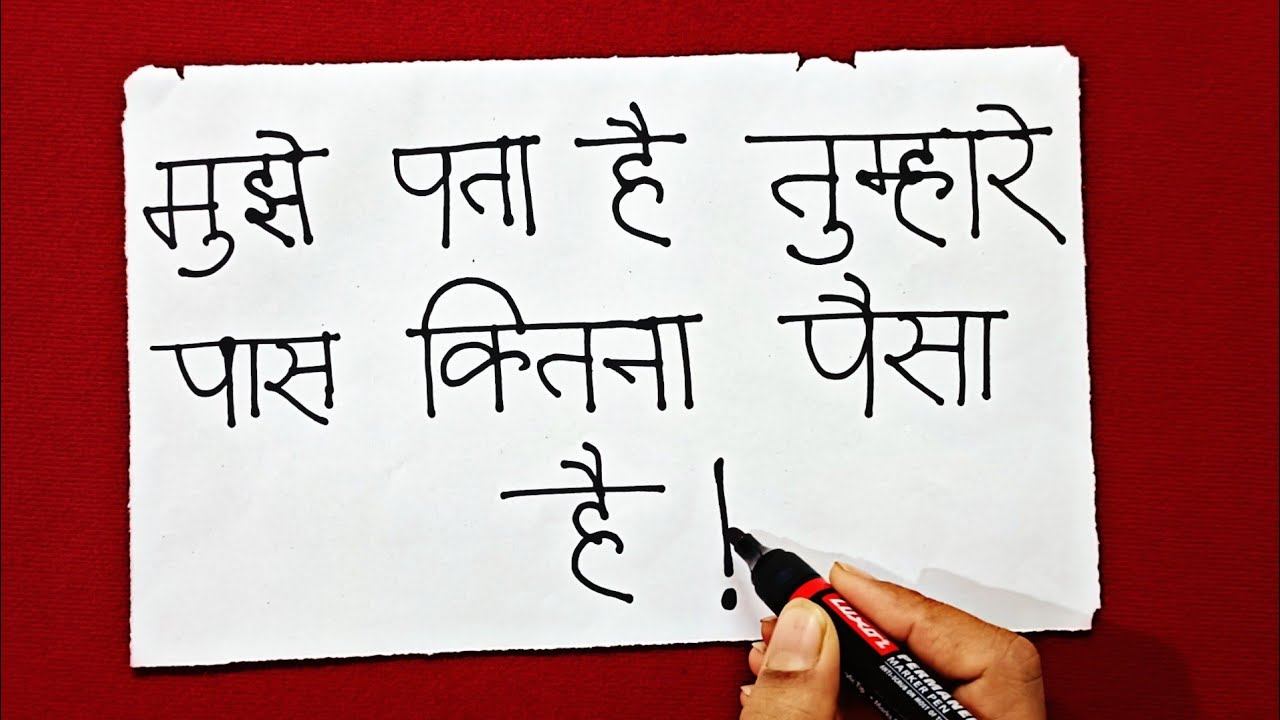 मुझे पता है तुम्हारे
पास कितना पैसा
है !
LUXOR
PERMANENT
MARKER PEN